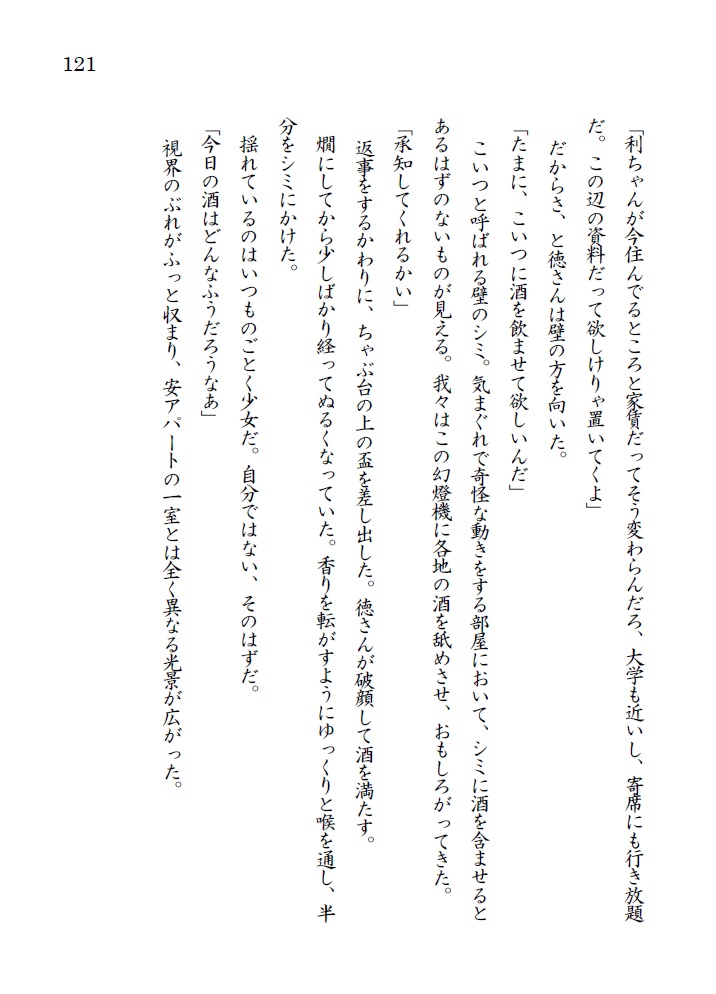 121
「利ちゃんが今住んでるところと家賃だってそう変わらんだろ、大学も近いし、寄席にも行き放題
だ。この辺の資料だって欲しけりゃ置いてくよ」
だからさ、と徳さんは壁の方を向いた。
「たまに、こいつに酒を飲ませて欲しいんだ」
こいつと呼ばれる壁のシミ。気まぐれで奇怪な動きをする部屋において、シミに酒を含ませると
あるはずのないものが見える。我々はこの幻燈機に各地の酒を舐めさせ、おもしろがってきた。
「承知してくれるかい」
返事をするかわりに、ちゃぶ台の上の盃を差し出した。徳さんが破顔して酒を満たす。
燗にしてから少しばかり経ってぬるくなっていた。香りを転がすようにゆっくりと喉を通し、半
分をシミにかけた。
揺れているのはいつものごとく少女だ。自分ではない、そのはずだ。
「今日の酒はどんなふうだろうなあ」
視界のぶれがふっと収まり、安アパートの一室とは全く異なる光景が広がった。